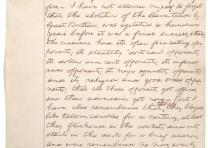 pires. I have not allowed myself to forget
that the abolition of the slave trade by
Great Britain, was agitated a hundred
years before it was a final success; that
the measure had its open fire-eating op-
ponents; its stealthy "don't care" opponents;
its dollar and cent opponents; its inferior
race opponents; its negro equality oppo-
nents; and its religion and good order oppo-
nents; that all these opponents got offices,
and their adversaries got none. But I
have also remembered that they blazed
like tallow-candles for a century, at last
they flickered in the socket, died out,
stank in the dark for a brief season,
and were remembered no more, even by